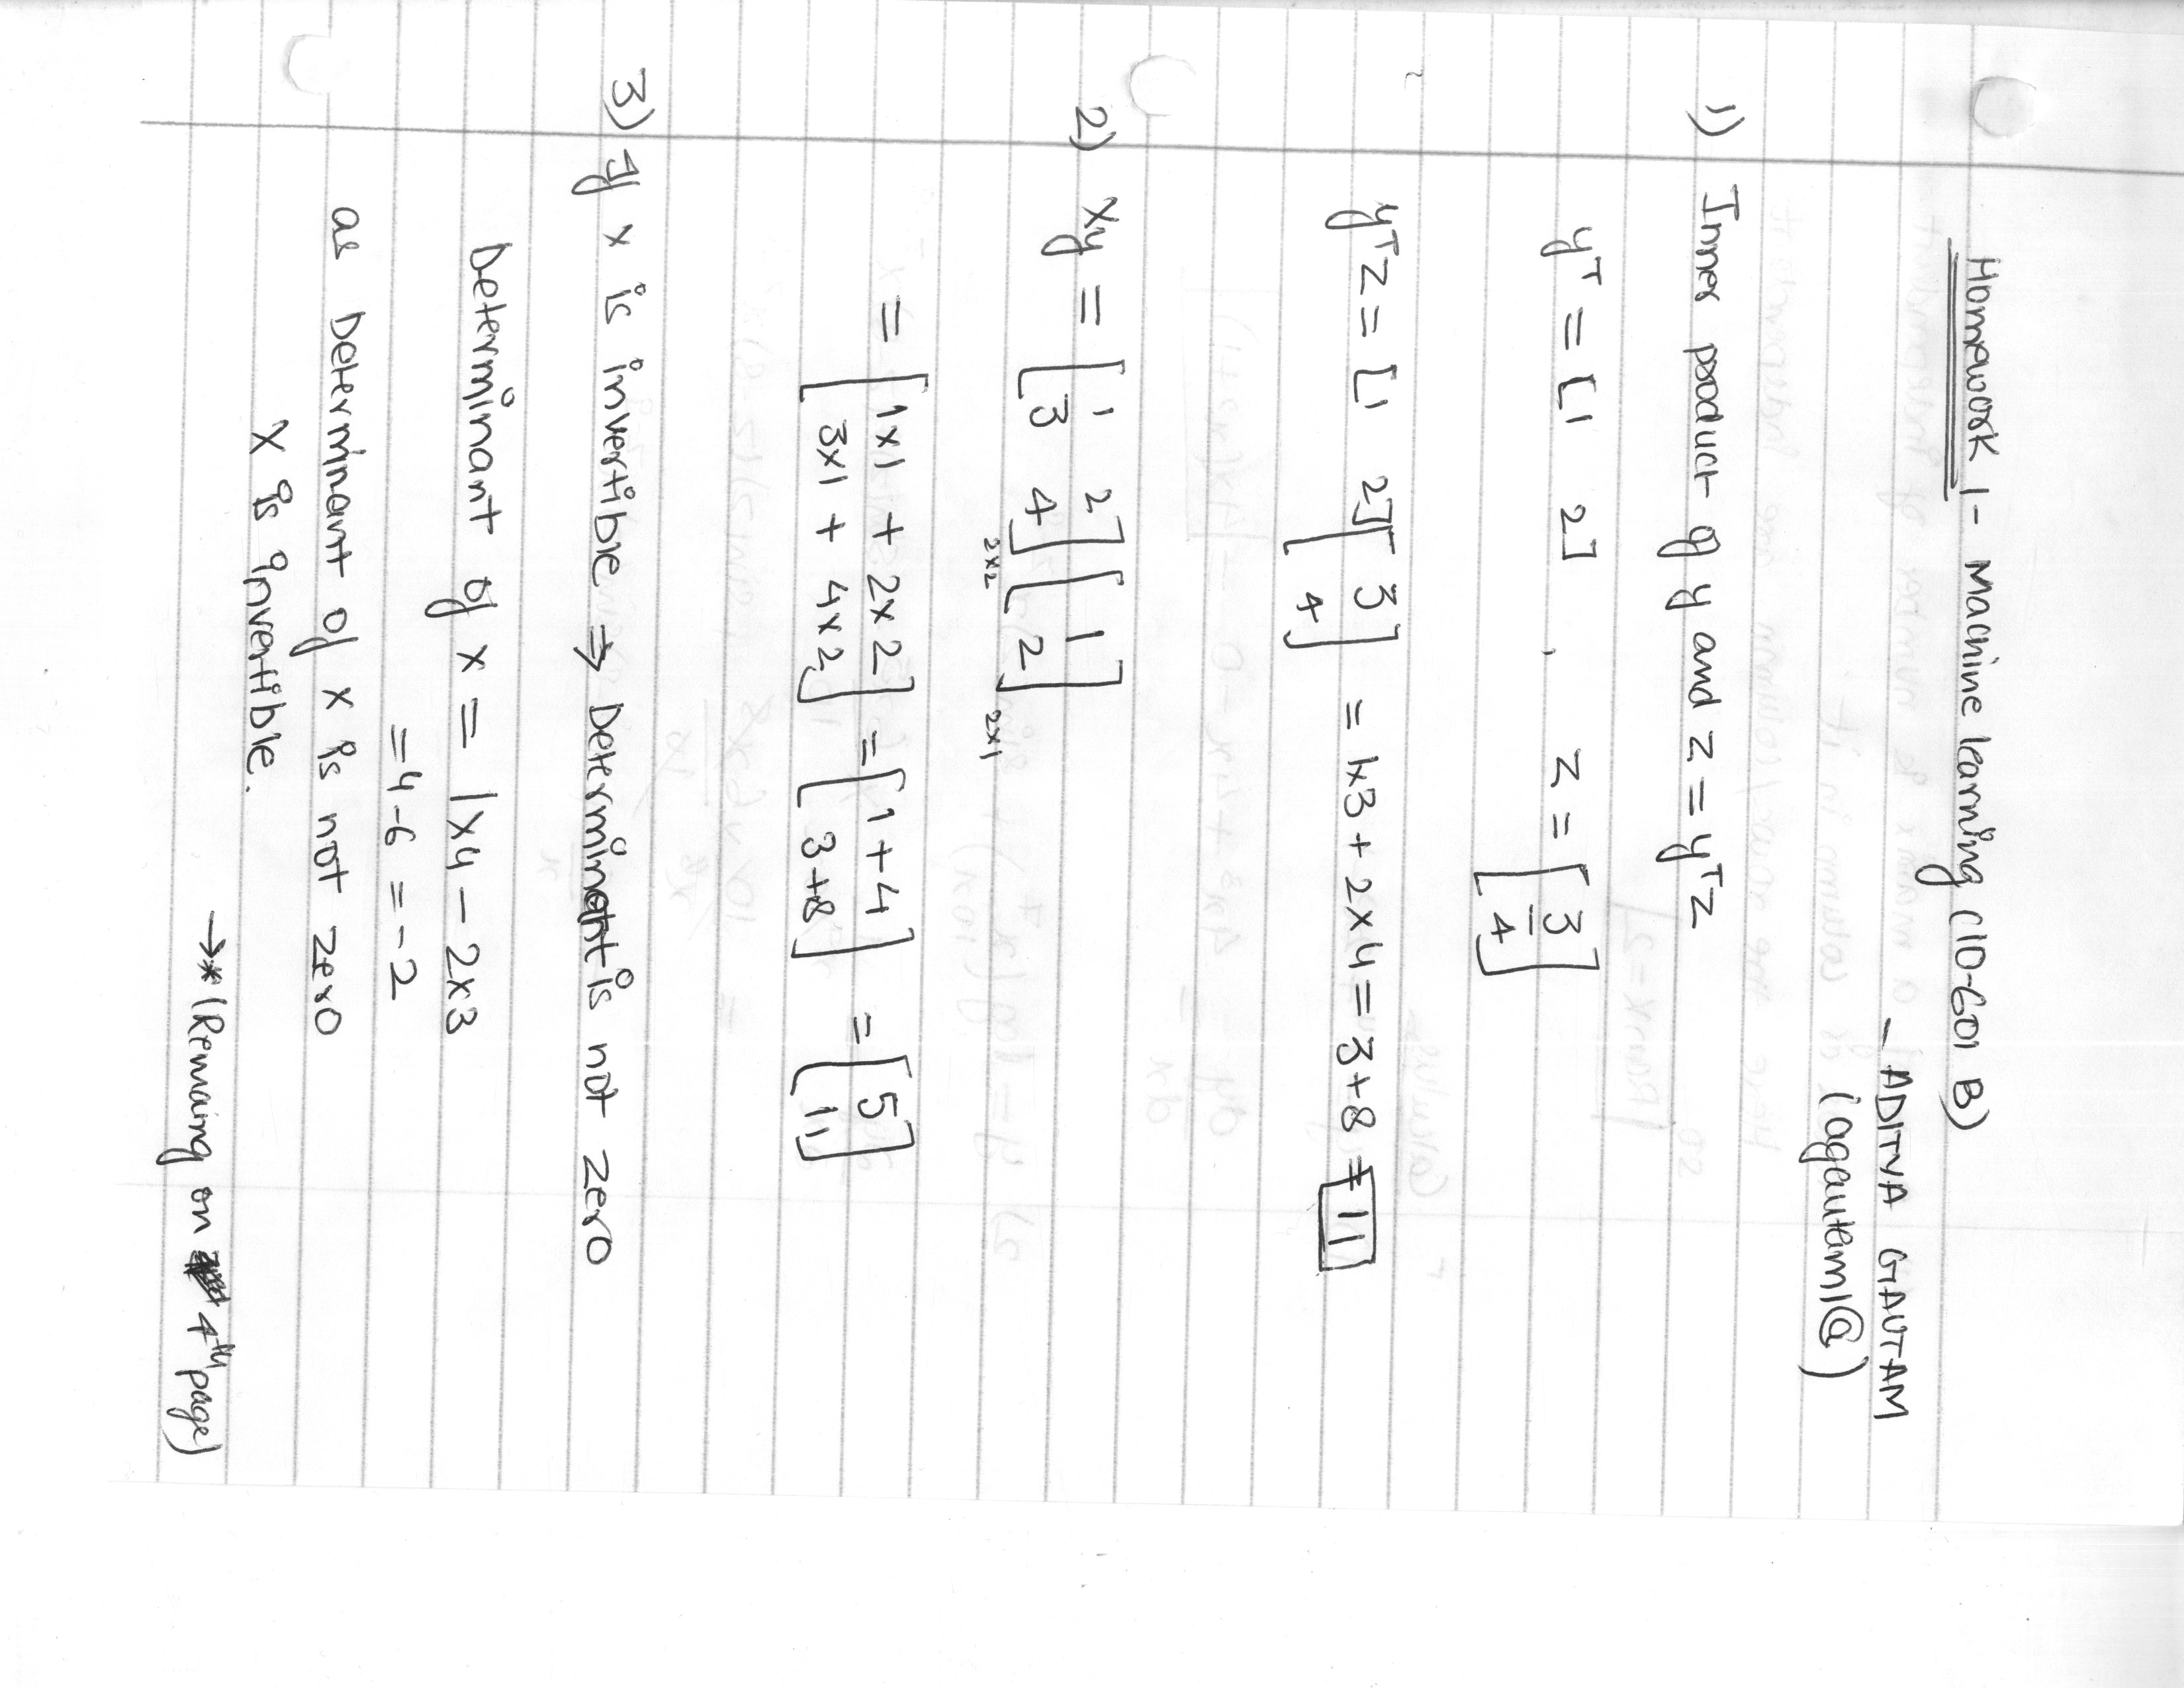 Homework 1 - Machine learning (10-601 B)
- ADITYA GAUTAM
(agautam1@)
1) Inner product of y and z = yᵀz
yᵀ = [1 2] , z = [3 4]
yᵀz = [1 2] [3 4] = 1x3 + 2x4 = 3+8 = 11
2) Xy = [1 2 3 4] 2x2 [1 2] 2x1
= [1x1 + 2x2 3x1 + 4x2] = [1+4 3+8] = [5 11]
3) If X is invertible ⇒ Determinant is not zero
Determinant of X = 1x4 - 2x3
= 4-6 = -2
as Determinant of X is not zero
X is invertible.
→* (Remaing on 4th page)